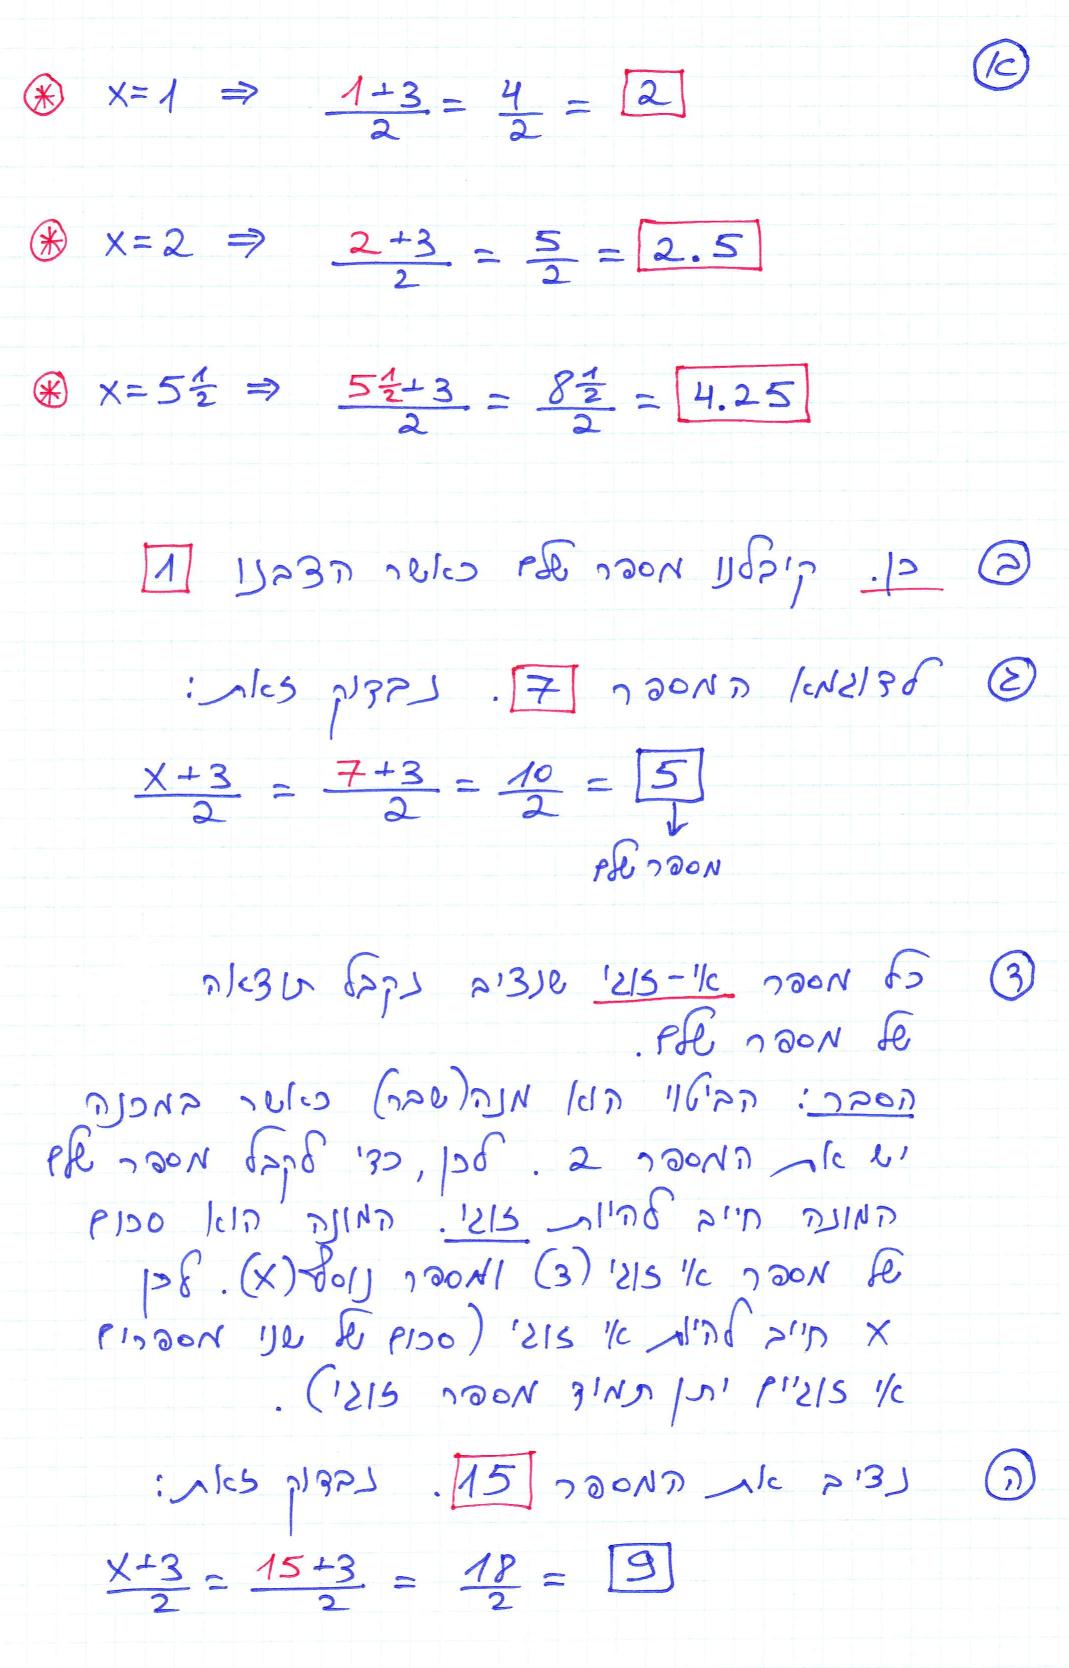 א
* x=1 ⇒ (1+3)/2 = 4/2 = 2
* x=2 ⇒ (2+3)/2 = 5/2 = 2.5
* x=5½ ⇒ (5½+3)/2 = 8½/2 = 4.25
ב כן. קיבלנו מספר שלם כאשר הצבנו 1
ג לדוגמא המספר 7. נבדוק זאת:
(x+3)/2 = (7+3)/2 = 10/2 = 5
↓
מספר שלם
ד כל מספר אי-זוגי שנציב נקבל תוצאה
של מספר שלם.
הסבר: הביטוי הוא מנה (שבר) כאשר במכנה
יש את המספר 2. לכן, כדי לקבל מספר שלם
המונה חייב להיות זוגי. המונה הוא סכום
של מספר אי זוגי (3) ומספר נוסף (x). לכן
x חייב להיות אי זוגי (סכום של שני מספרים
אי זוגיים יתן תמיד מספר זוגי).
ה נציב את המספר 15. נבדוק זאת:
(x+3)/2 = (15+3)/2 = 18/2 = 9